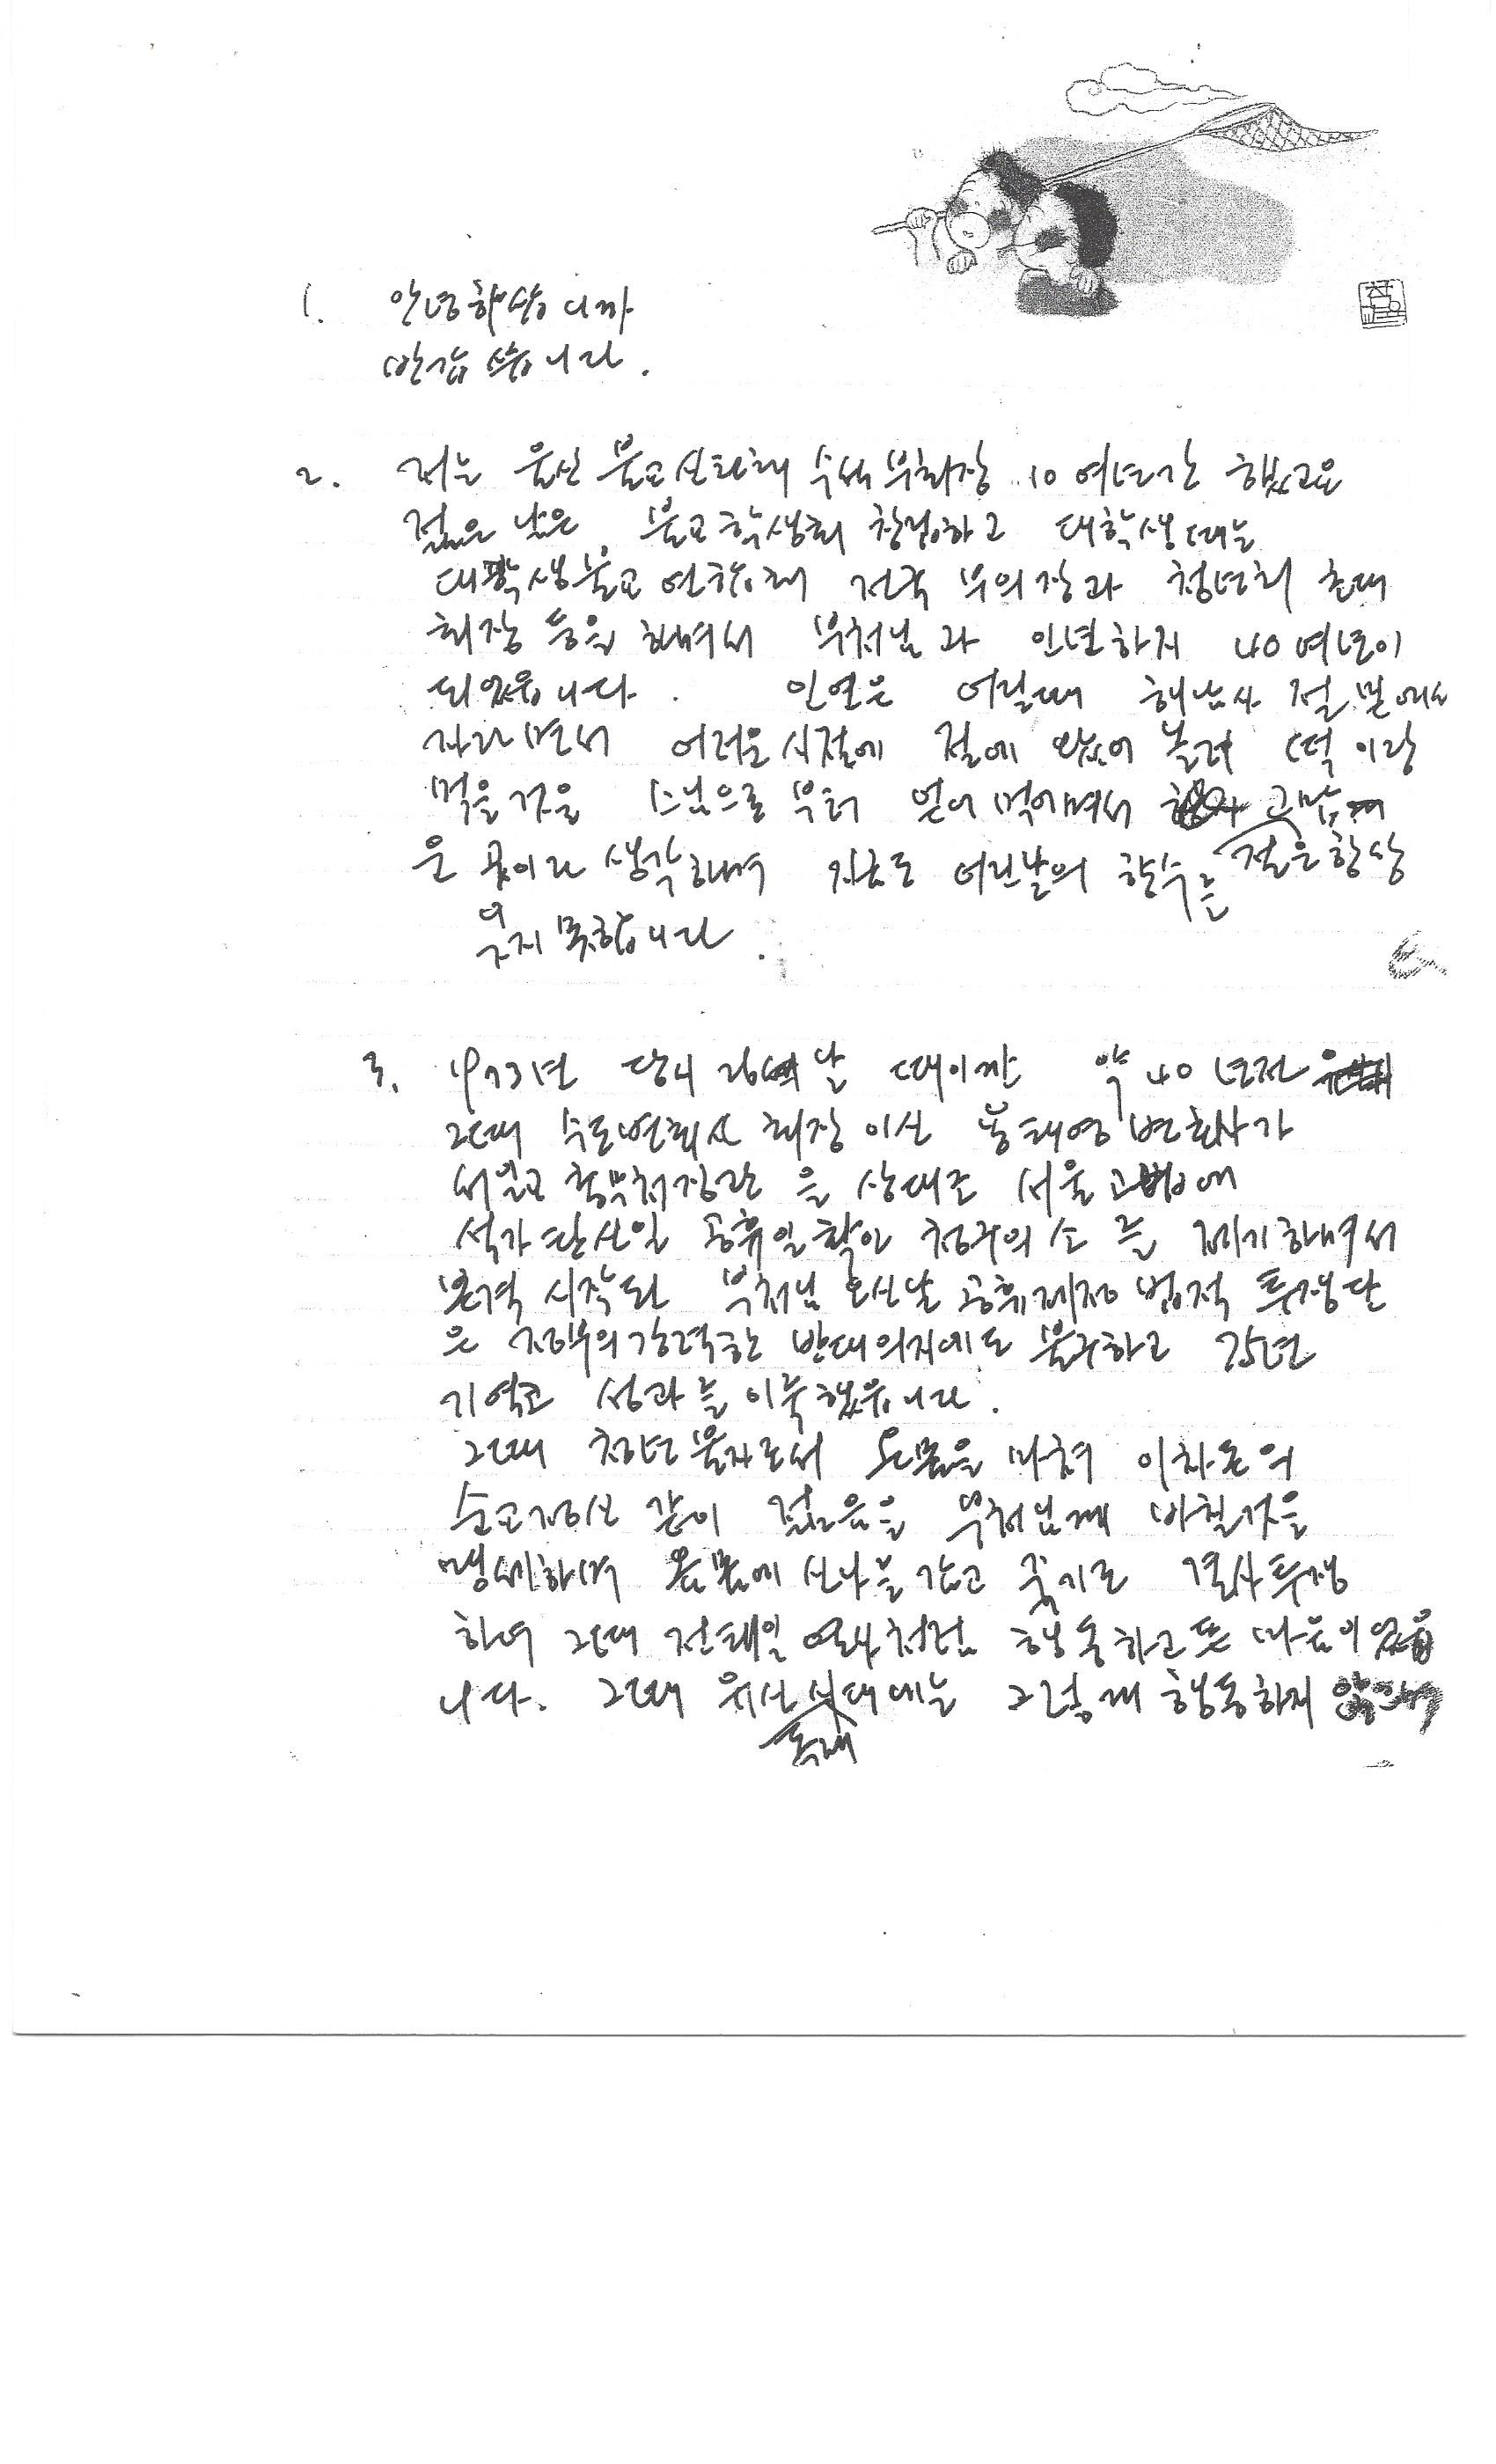 1. 안녕하십니까
반갑습니다.
2. 저는 울산 불교신도회 수석부회장 10여년간 했고요
젊은 날은 불교학생회 창립하고 대학생때는
대학생불교연합회 전국 부의장과 청년회 초대
회장 등을 하면서 부처님과 인연하지 40여년이
되었읍니다. 인연은 어릴때 해남사 절 밑에서
자라면서 어려운시절에 절에 놀러 떡이랑
먹을것을 스님으로부터 얻어먹으며서
은 곳이라 생각하며 지금도 어린날의 향수를 절은 항상
잊지 못합니다.
3. 1973년 당시 26살 때이까 약 40년전
그때 수도변회사 회장이신 용태영변호사가
서일교 총무처장관을 상대로 서울고법에
석가탄신일 공휴일확인 청구의 소를 제기하면서
본격 시작된 부처님 오신날 공휴제정 법적 투쟁단
은 정부의 강력한 반대의지에도 불구하고 75년
기여코 성과를 이룩했읍니다.
그때 청년불자로서 온몸을 바쳐 이차돈의
순교정신 같이 젊음을 부처님께 바칠것을
맹세하며 온몸에 신나를 갖고 죽기로 결사투쟁
하여 그때 전태일 열사처럼 행동하고픈 마음이 있읍
니다. 그때 유신독재시대에는 그렇게 행동하지